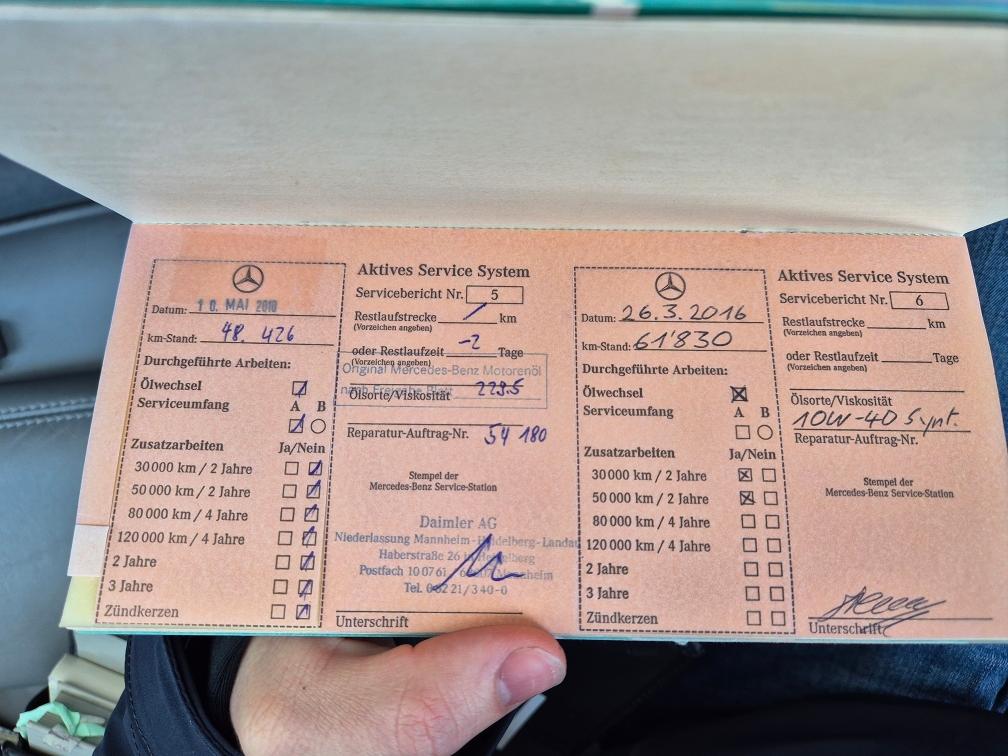 Aktives Service System
Servicebericht Nr. 5
Datum: 10. MAI 2010
Restlaufstrecke km
(Vorzeichen angeben)
km-Stand: 48. 426
oder Restlaufzeit -2 Tage
(Vorzeichen angeben)
Durchgeführte Arbeiten:
Original Mercedes-Benz Motorenöl
nach Freigabe Blatt
Ölwechsel
Ölsorte/Viskosität 229.5
Serviceumfang A B
Reparatur-Auftrag-Nr. 54 180
Zusatzarbeiten Ja/Nein
30 000 km / 2 Jahre
50 000 km / 2 Jahre
80 000 km / 4 Jahre
120 000 km / 4 Jahre
2 Jahre
3 Jahre
Zündkerzen
Stempel der
Mercedes-Benz Service-Station
Daimler AG
Niederlassung Mannheim-Heidelberg-Landau
Haberstraße 26 Heidelberg
Postfach 10 07 61 Mannheim
Tel. 0 62 21 / 3 40-0
Unterschrift
Aktives Service System
Servicebericht Nr. 6
Datum: 26.3.2016
Restlaufstrecke km
(Vorzeichen angeben)
km-Stand: 61'830
oder Restlaufzeit Tage
(Vorzeichen angeben)
Durchgeführte Arbeiten:
Ölwechsel
Ölsorte/Viskosität
10W-40 Synt.
Serviceumfang A B
Reparatur-Auftrag-Nr.
Zusatzarbeiten Ja/Nein
30 000 km / 2 Jahre
50 000 km / 2 Jahre
80 000 km / 4 Jahre
120 000 km / 4 Jahre
2 Jahre
3 Jahre
Zündkerzen
Stempel der
Mercedes-Benz Service-Station
Unterschrift